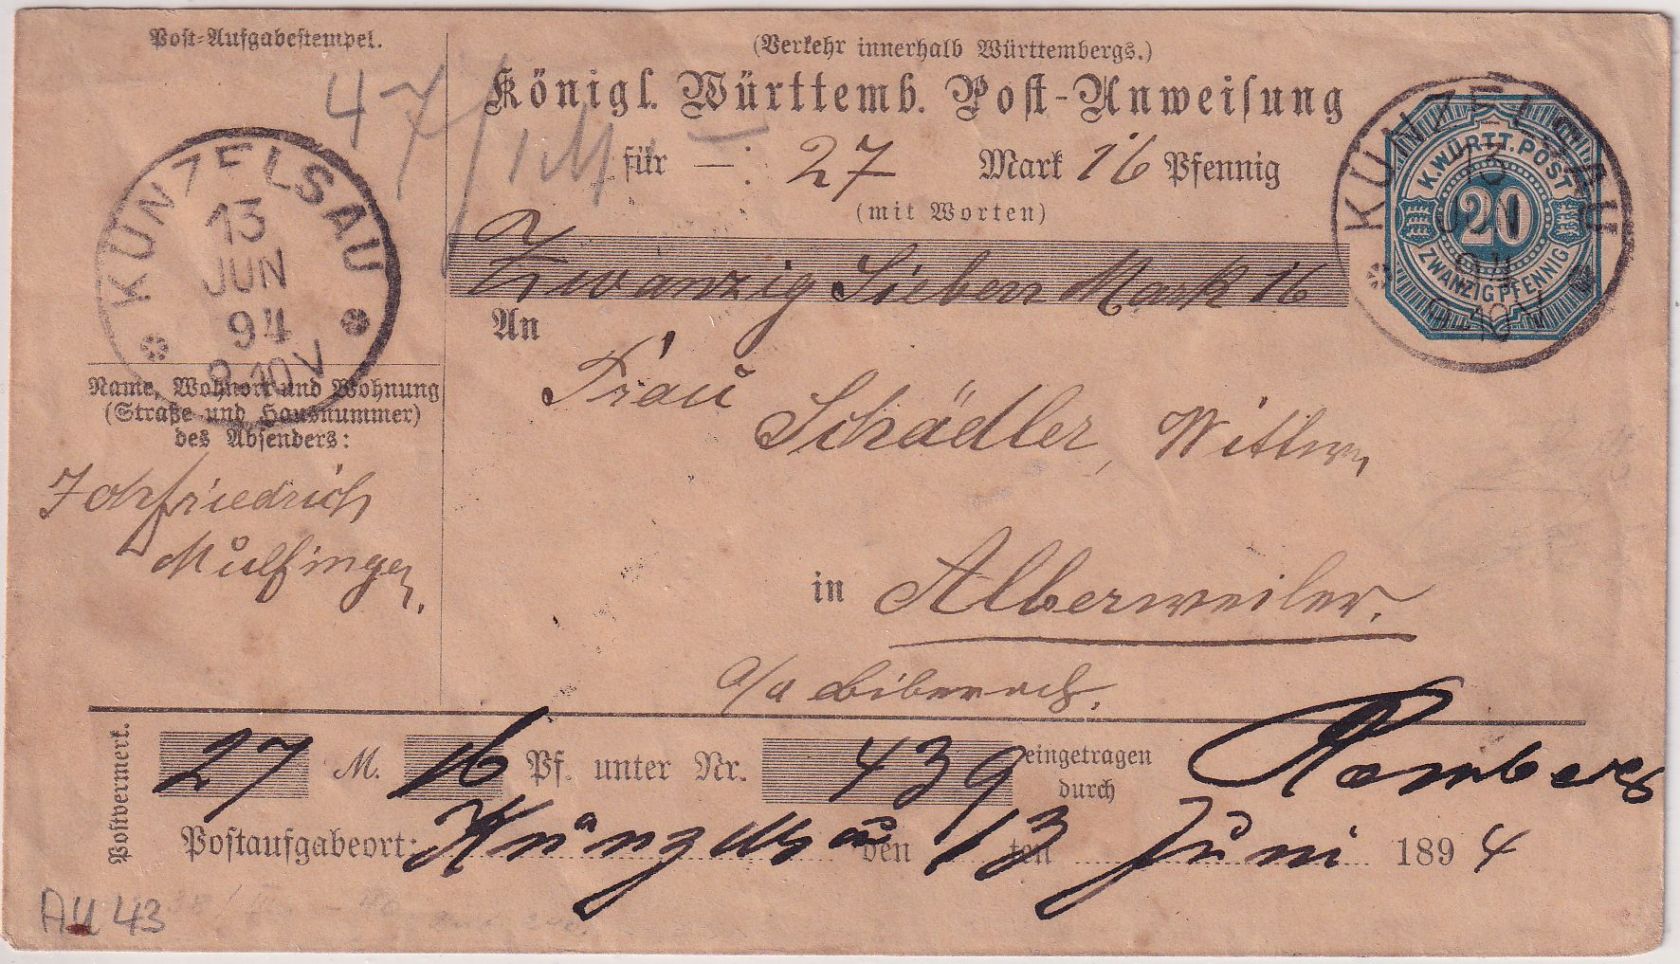 Post-Aufgabestempel.
(Verkehr innerhalb Württembergs.)
Königl. Württemb. Post-Anweisung
47/
für —: 27 Mark 16 Pfennig
(mit Worten)
Zwanzig Sieben Mark 16
KÜNZELSAU
13
JUN
94
9-10V
KÜNZELSAU
13
JUN
94
9-10V
K. WÜRTT. POST
20
ZWANZIG PFENNIG
An
Frau
Schädler, Wittwe
in Alberweiler.
o/a Biberach.
Name, Wohnort und Wohnung
(Straße und Hausnummer)
des Absenders:
Joh friedrich
Mulfingen.
Postvermerk.
27 M. 16 Pf. unter Nr. 439 eingetragen
durch
Postaufgabeort: Künzelsau den 13 ten Juni 1894
AU 43